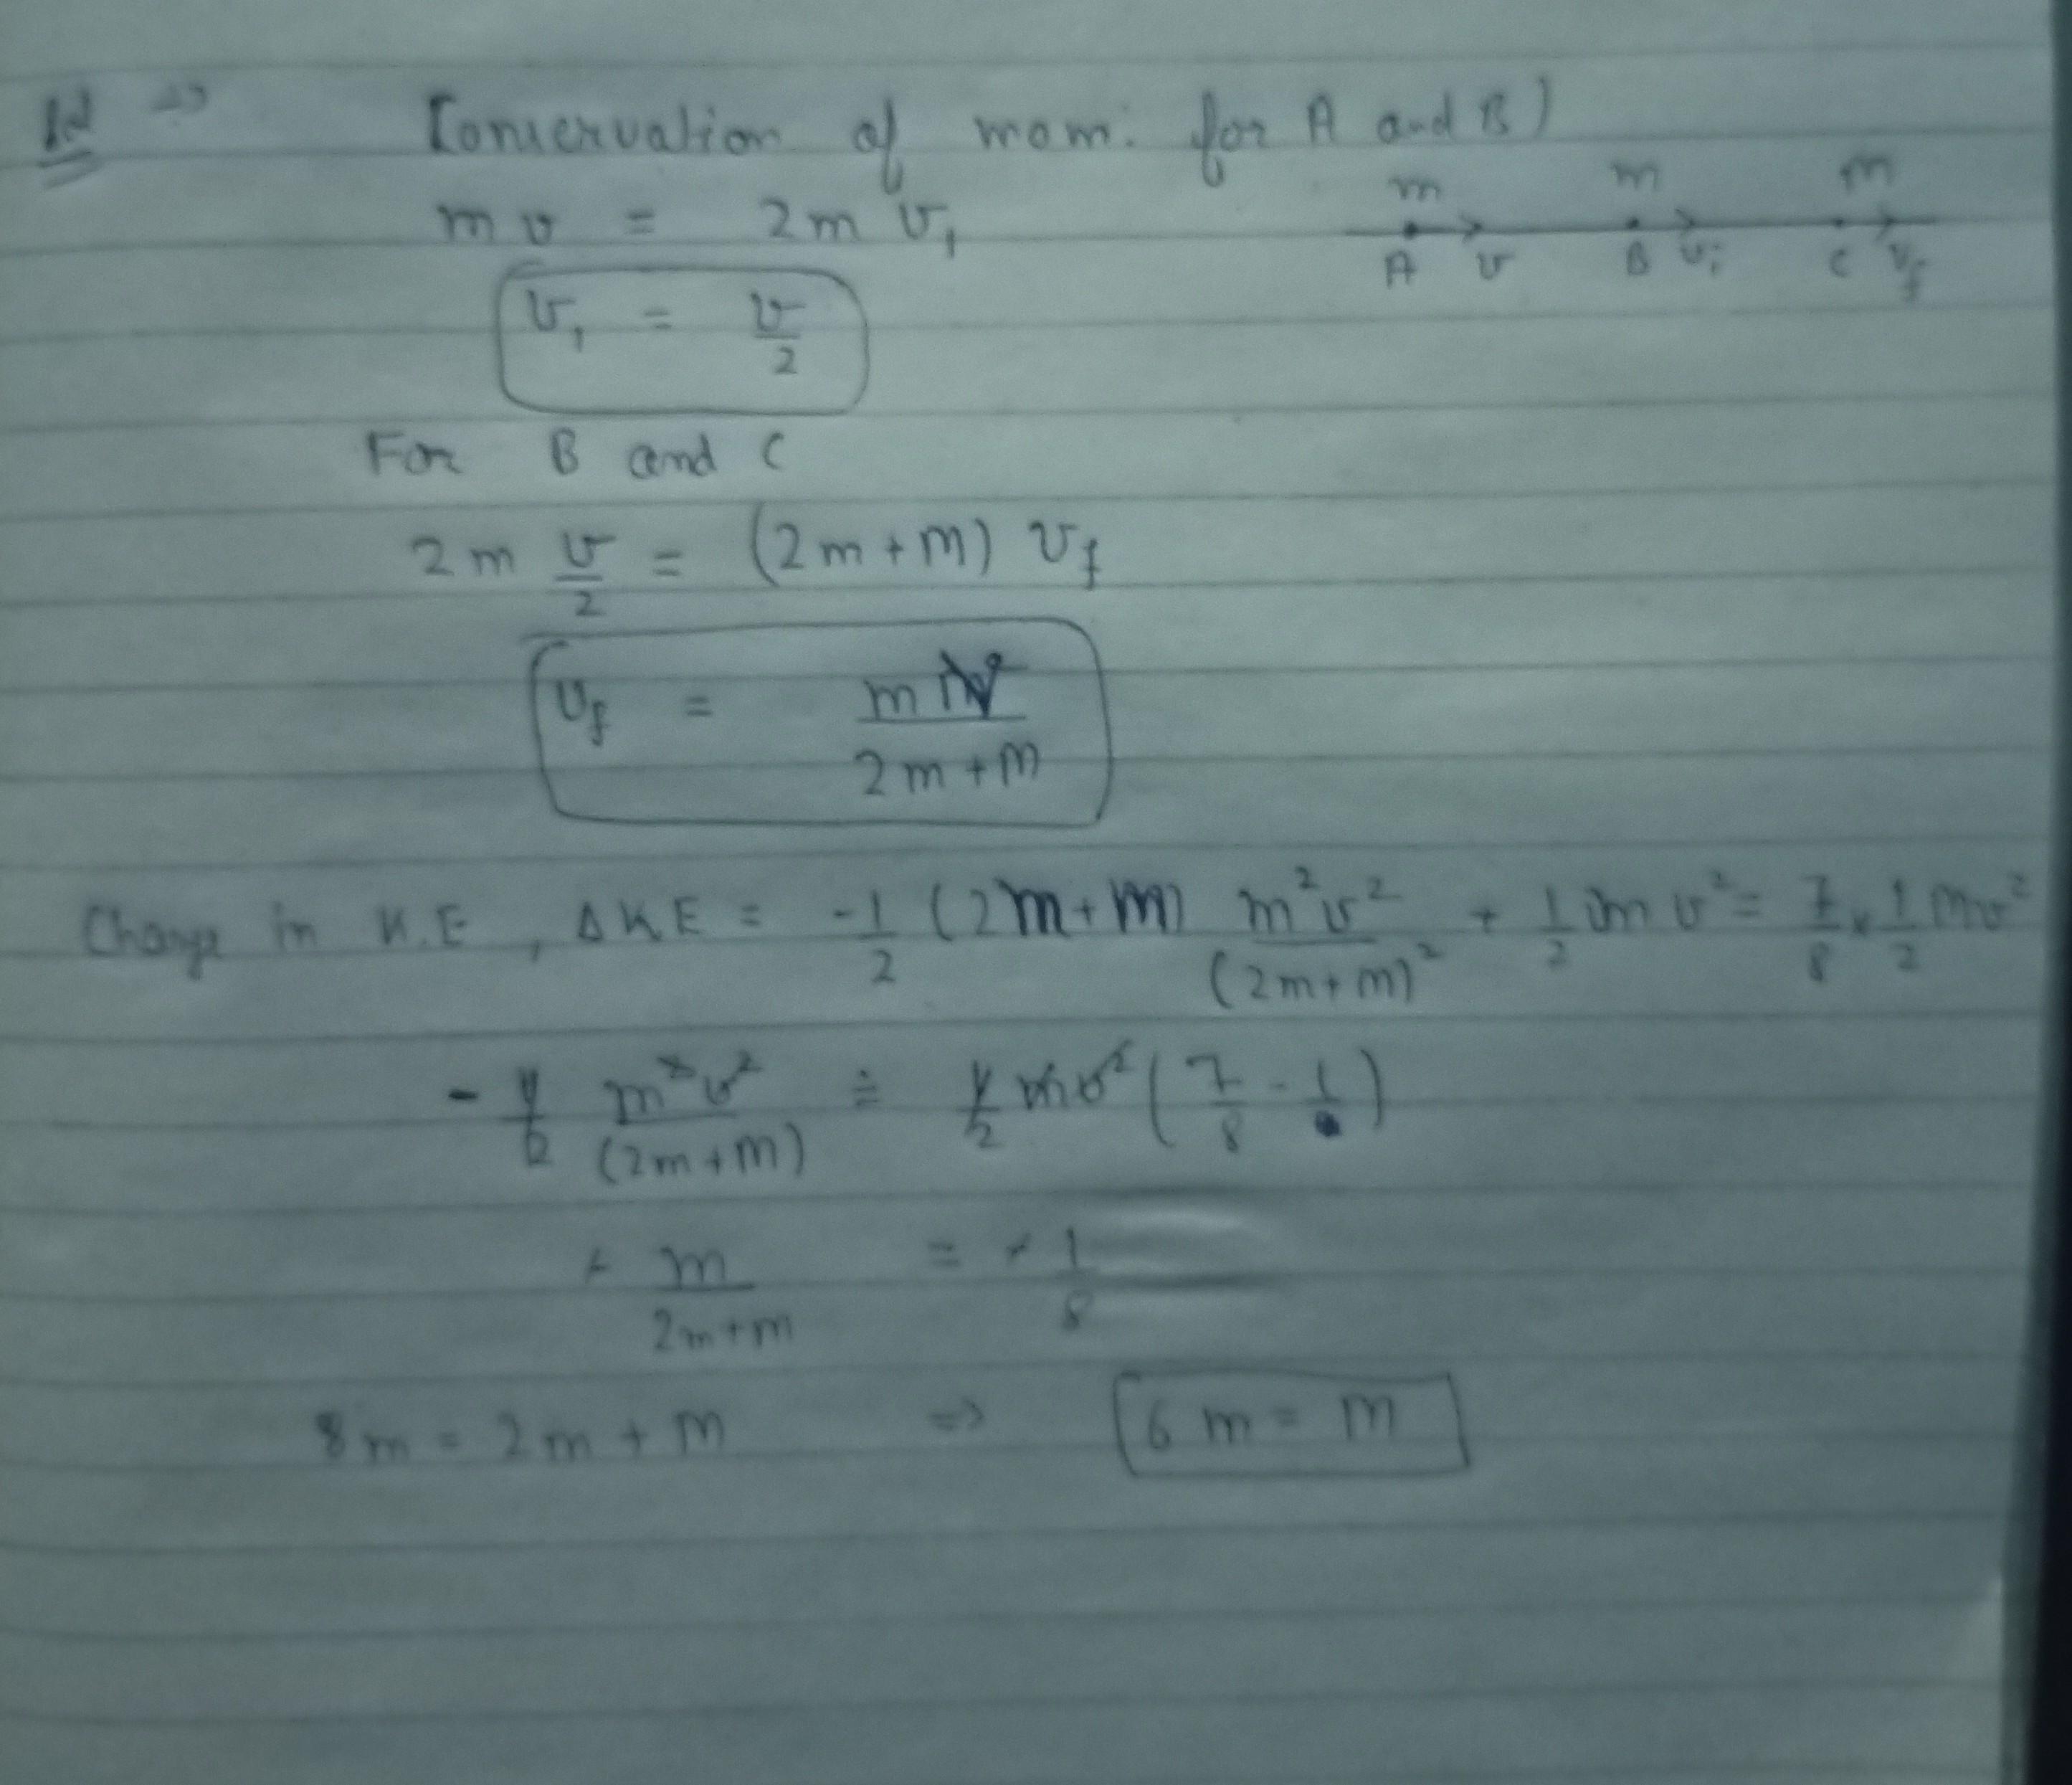 12 ⇒ Conservation of mom. for A and B)
m m m
A v B v₁ C v_f
mv = 2m v₁
v₁ = v/2
For B and C
2m v/2 = (2m+M) v_f
v_f = m v / 2m+M
Change in K.E, ΔKE = -1/2 (2m+M) m²v²/(2m+M)² + 1/2 m v² = 7/8 × 1/2 mv²
- 1/2 m²v²/(2m+M) = 1/2 mv² (7/8 - 1)
- m/2m+M = - 1/8
8m = 2m + M ⇒ 6m = M